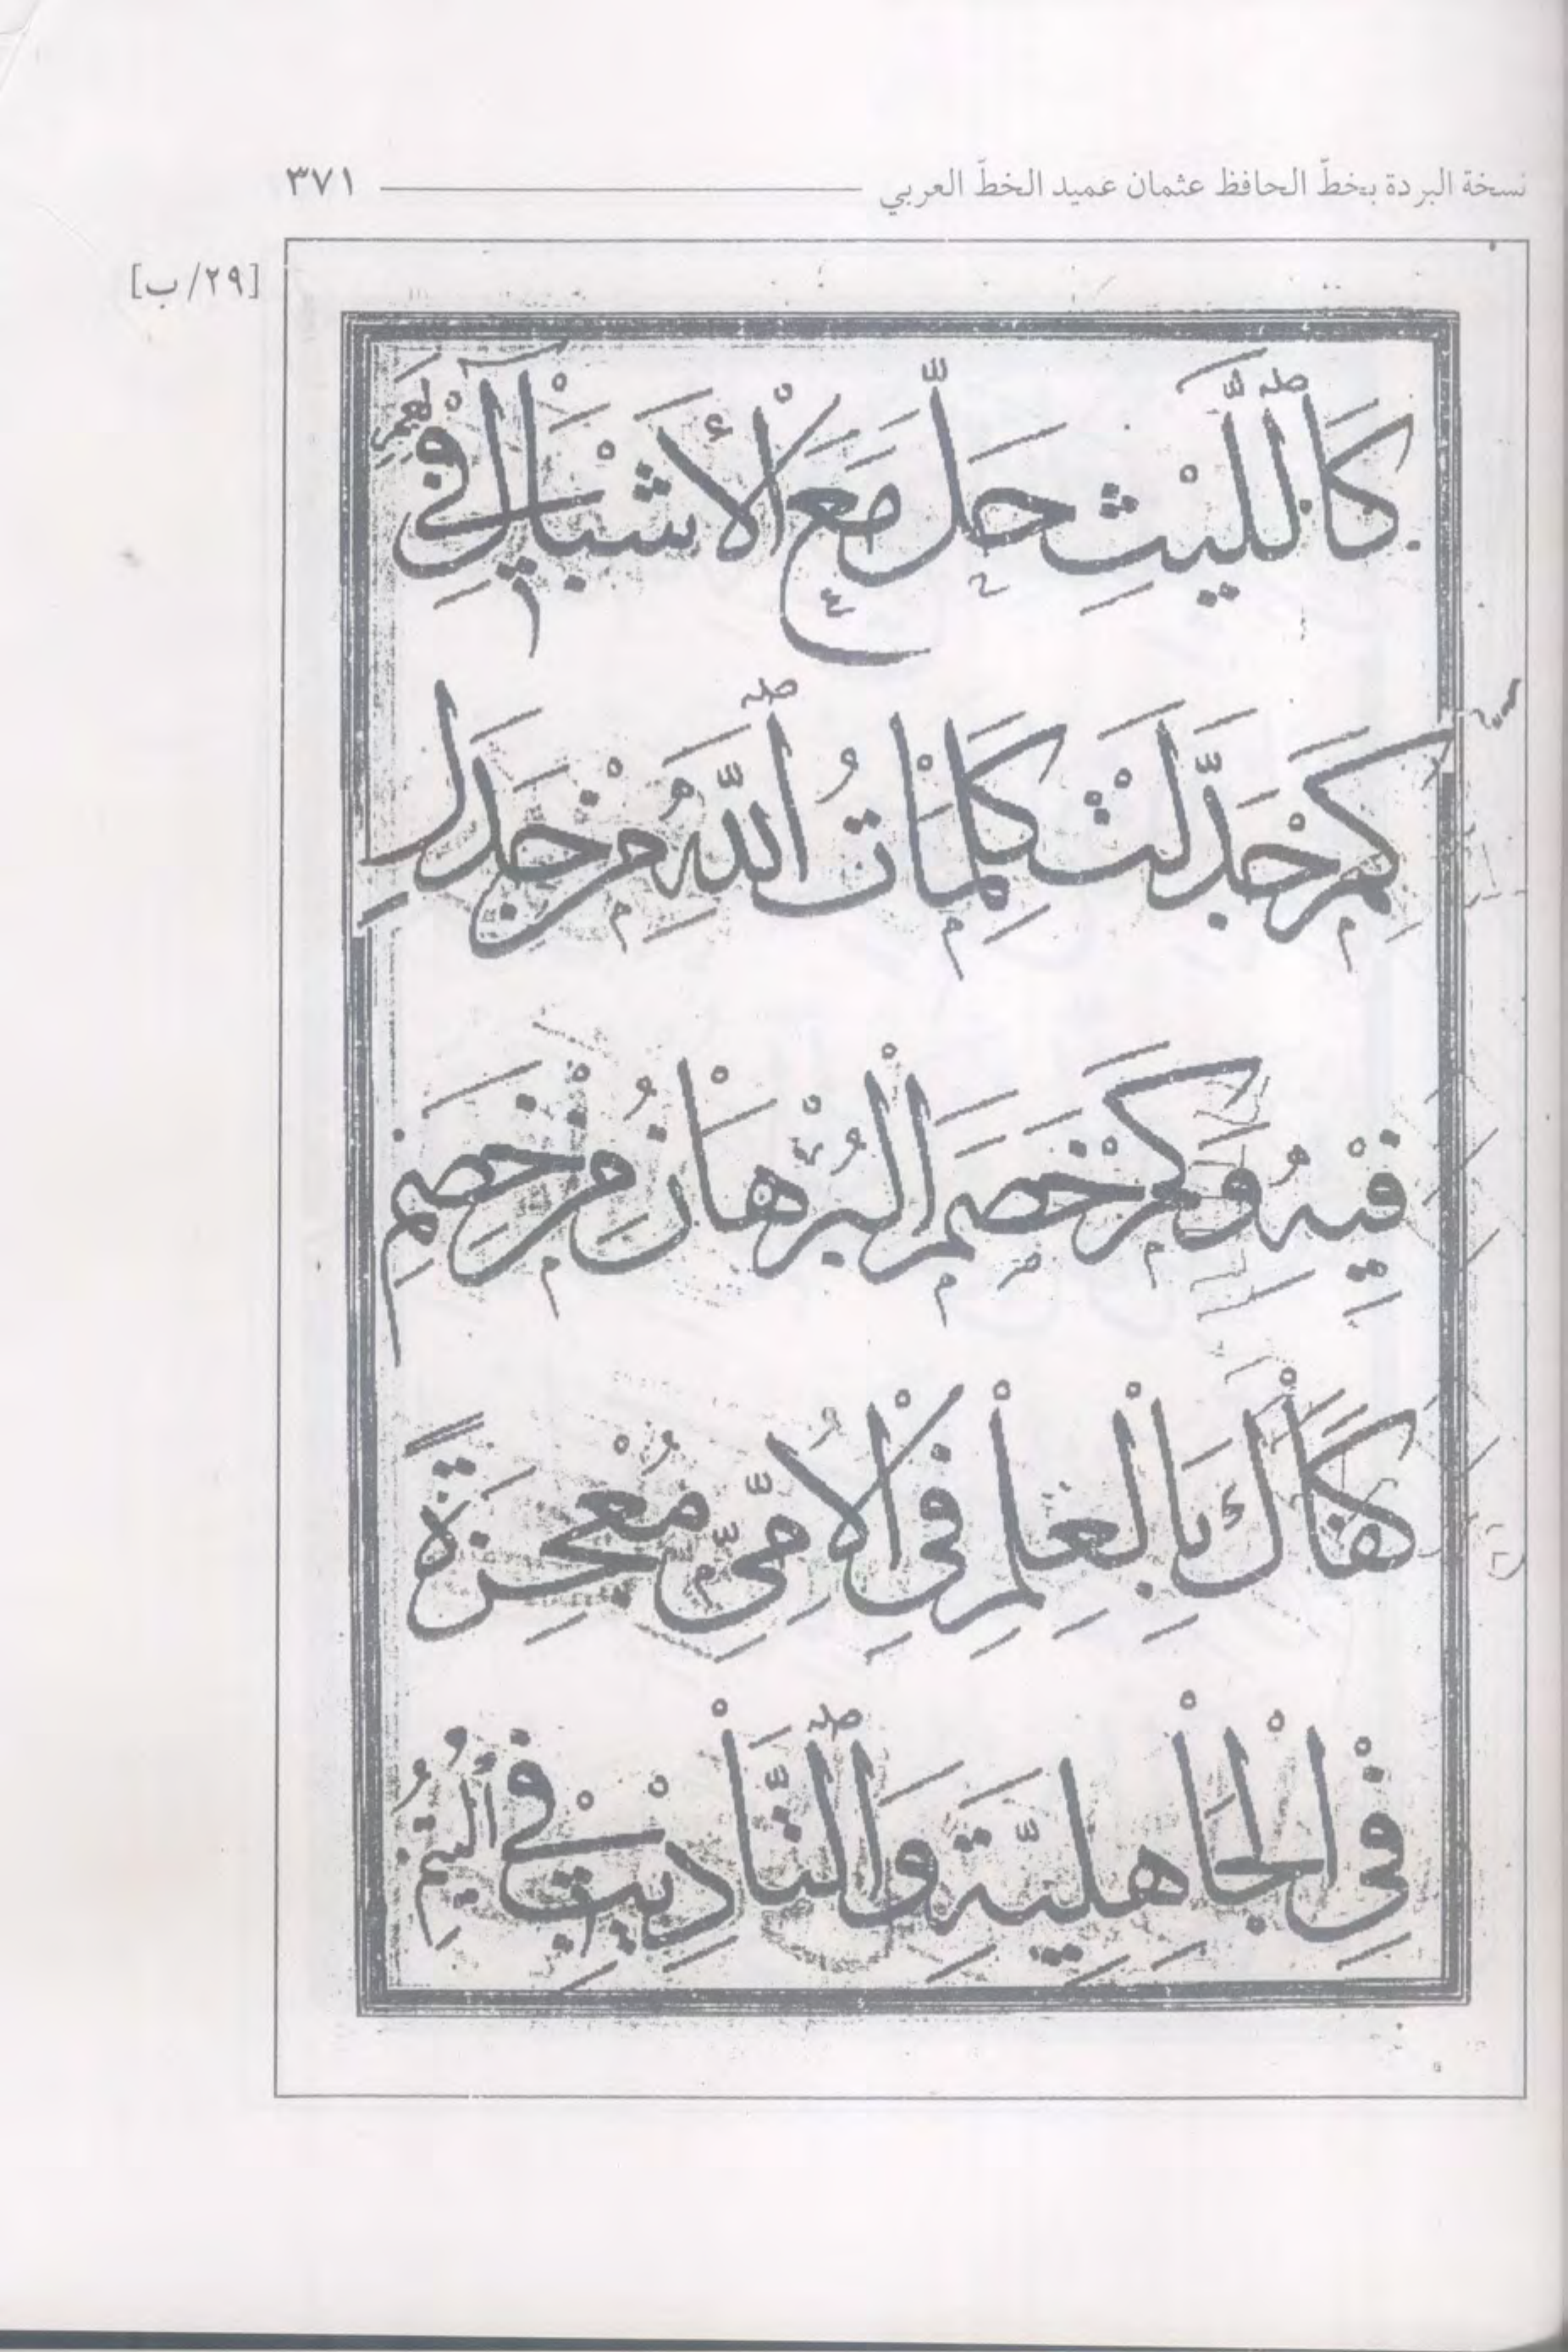 نسخة البردة بخطّ الحافظ عثمان عميد الخطّ العربي ٣٧١
[٢٩/ب]
كَاللَّيْثِ حَلَّ مَعَ الْأَشْبَالِ فِي أَجَمِ
كَمْ جَدَّلَتْ كَلِمَاتُ اللَّهِ مِنْ جَدَلٍ
فِيهِ وَكَمْ خَصَمَ الْبُرْهَانُ مِنْ خَصِمِ
كَفَاكَ بِالْعِلْمِ فِي الْأُمِّيِّ مُعْجِزَةً
فِي الْجَاهِلِيَّةِ وَالتَّأْدِيبِ فِي الْيُتُمِ